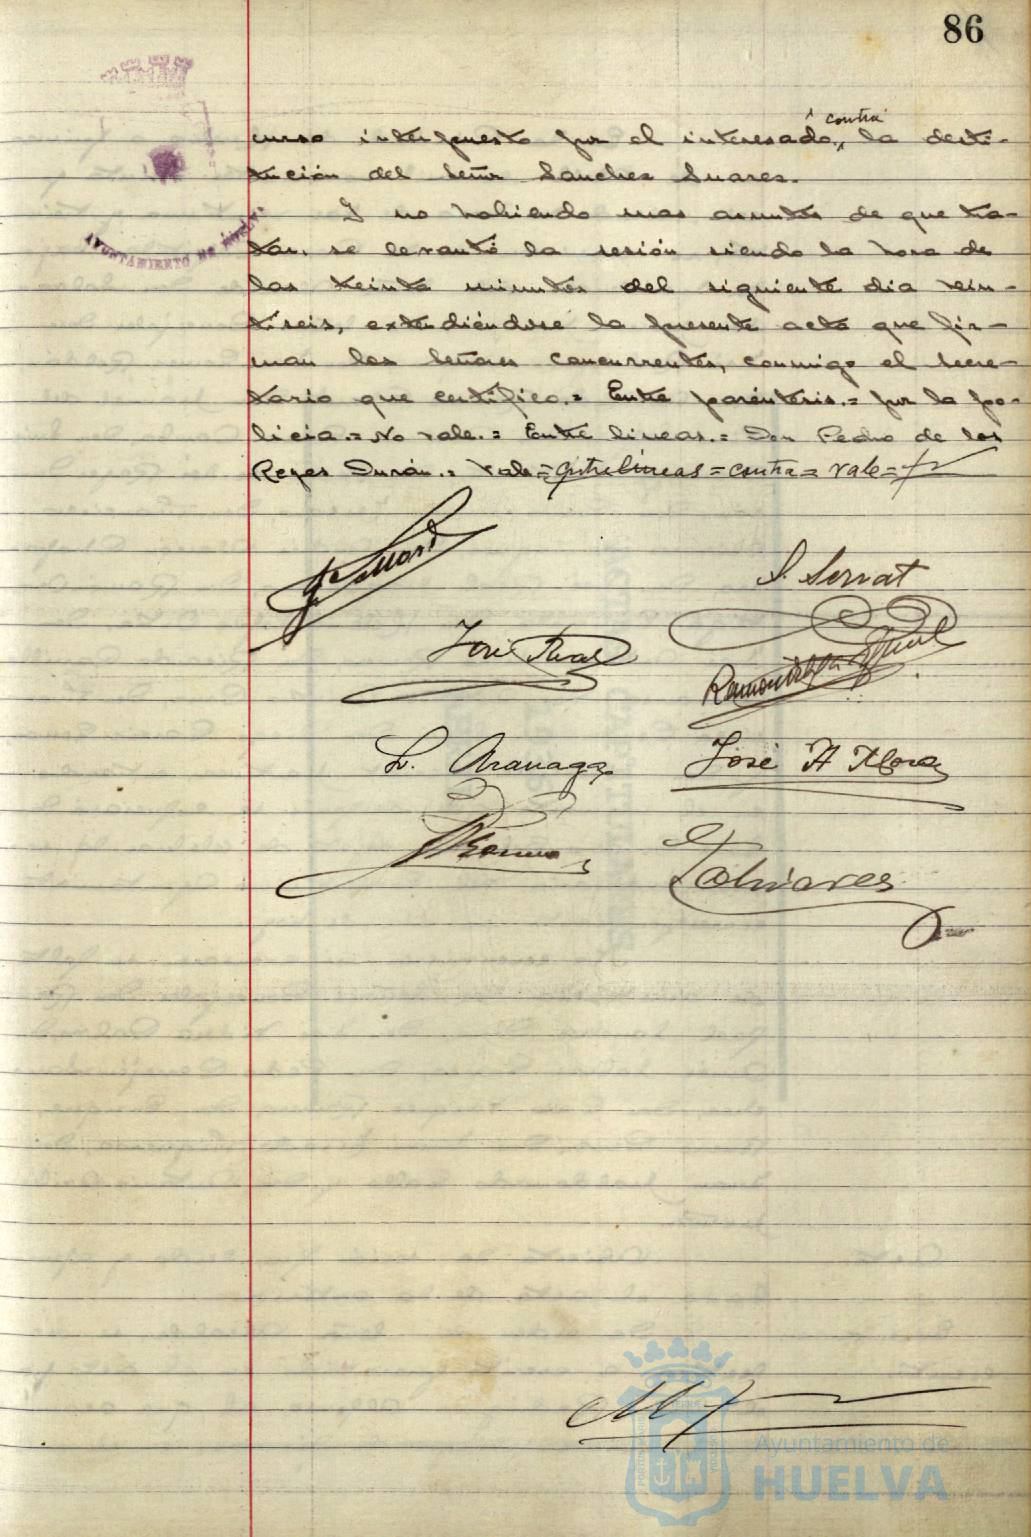 86
contra
curso interpuesto por el interesado, la desti-
tución del Señor Sanchez Suarez.
Y no habiendo mas asuntos de que tra-
tar, se levantó la sesión siendo la hora de
las treinta minutos del siguiente dia vein-
tiseis, extendiéndose la presente acta que fir-
man los Señores concurrentes, conmigo el secre-
tario que certifico.= Entre paréntesis.= por la po-
licia.= No vale.= Entre lineas.= Don Pedro de los
Reyes Durán.= Vale=entrelíneas=contra= vale=
S. Serrat
José
Ramón
L. Aranaga
José A
AYUNTAMIENTO DE HUELVA
Ayuntamiento de
HUELVA